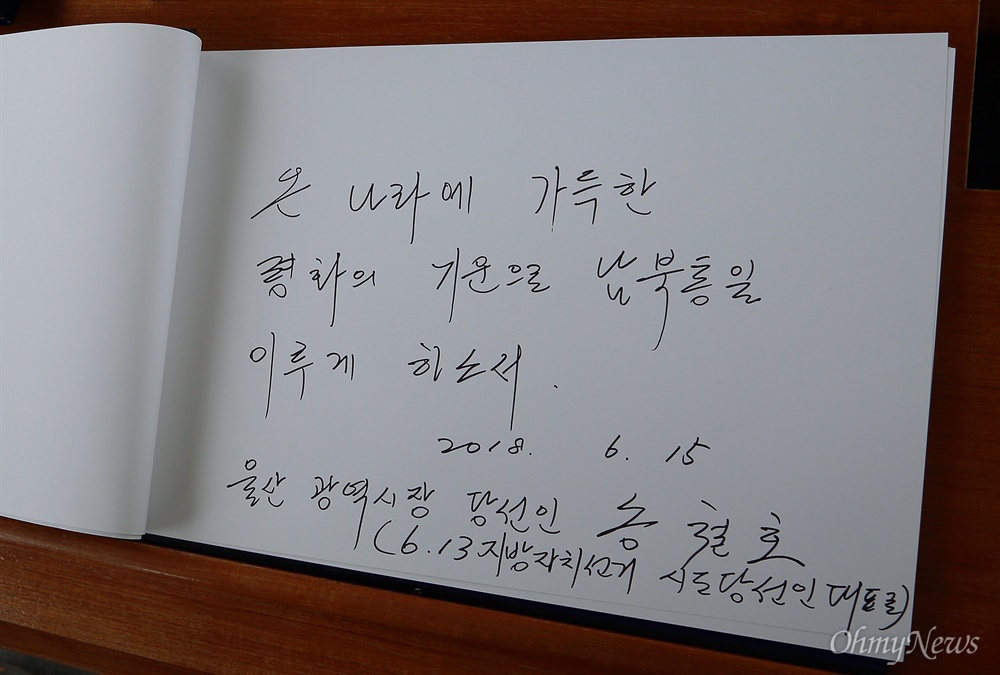 온 나라에 가득한
평화의 기운으로 남북통일
이루게 하소서.
2018. 6. 15
울산 광역시장 당선인 송철호
(6.13 지방자치선거 시도당선인 대표로)
OhmyNews